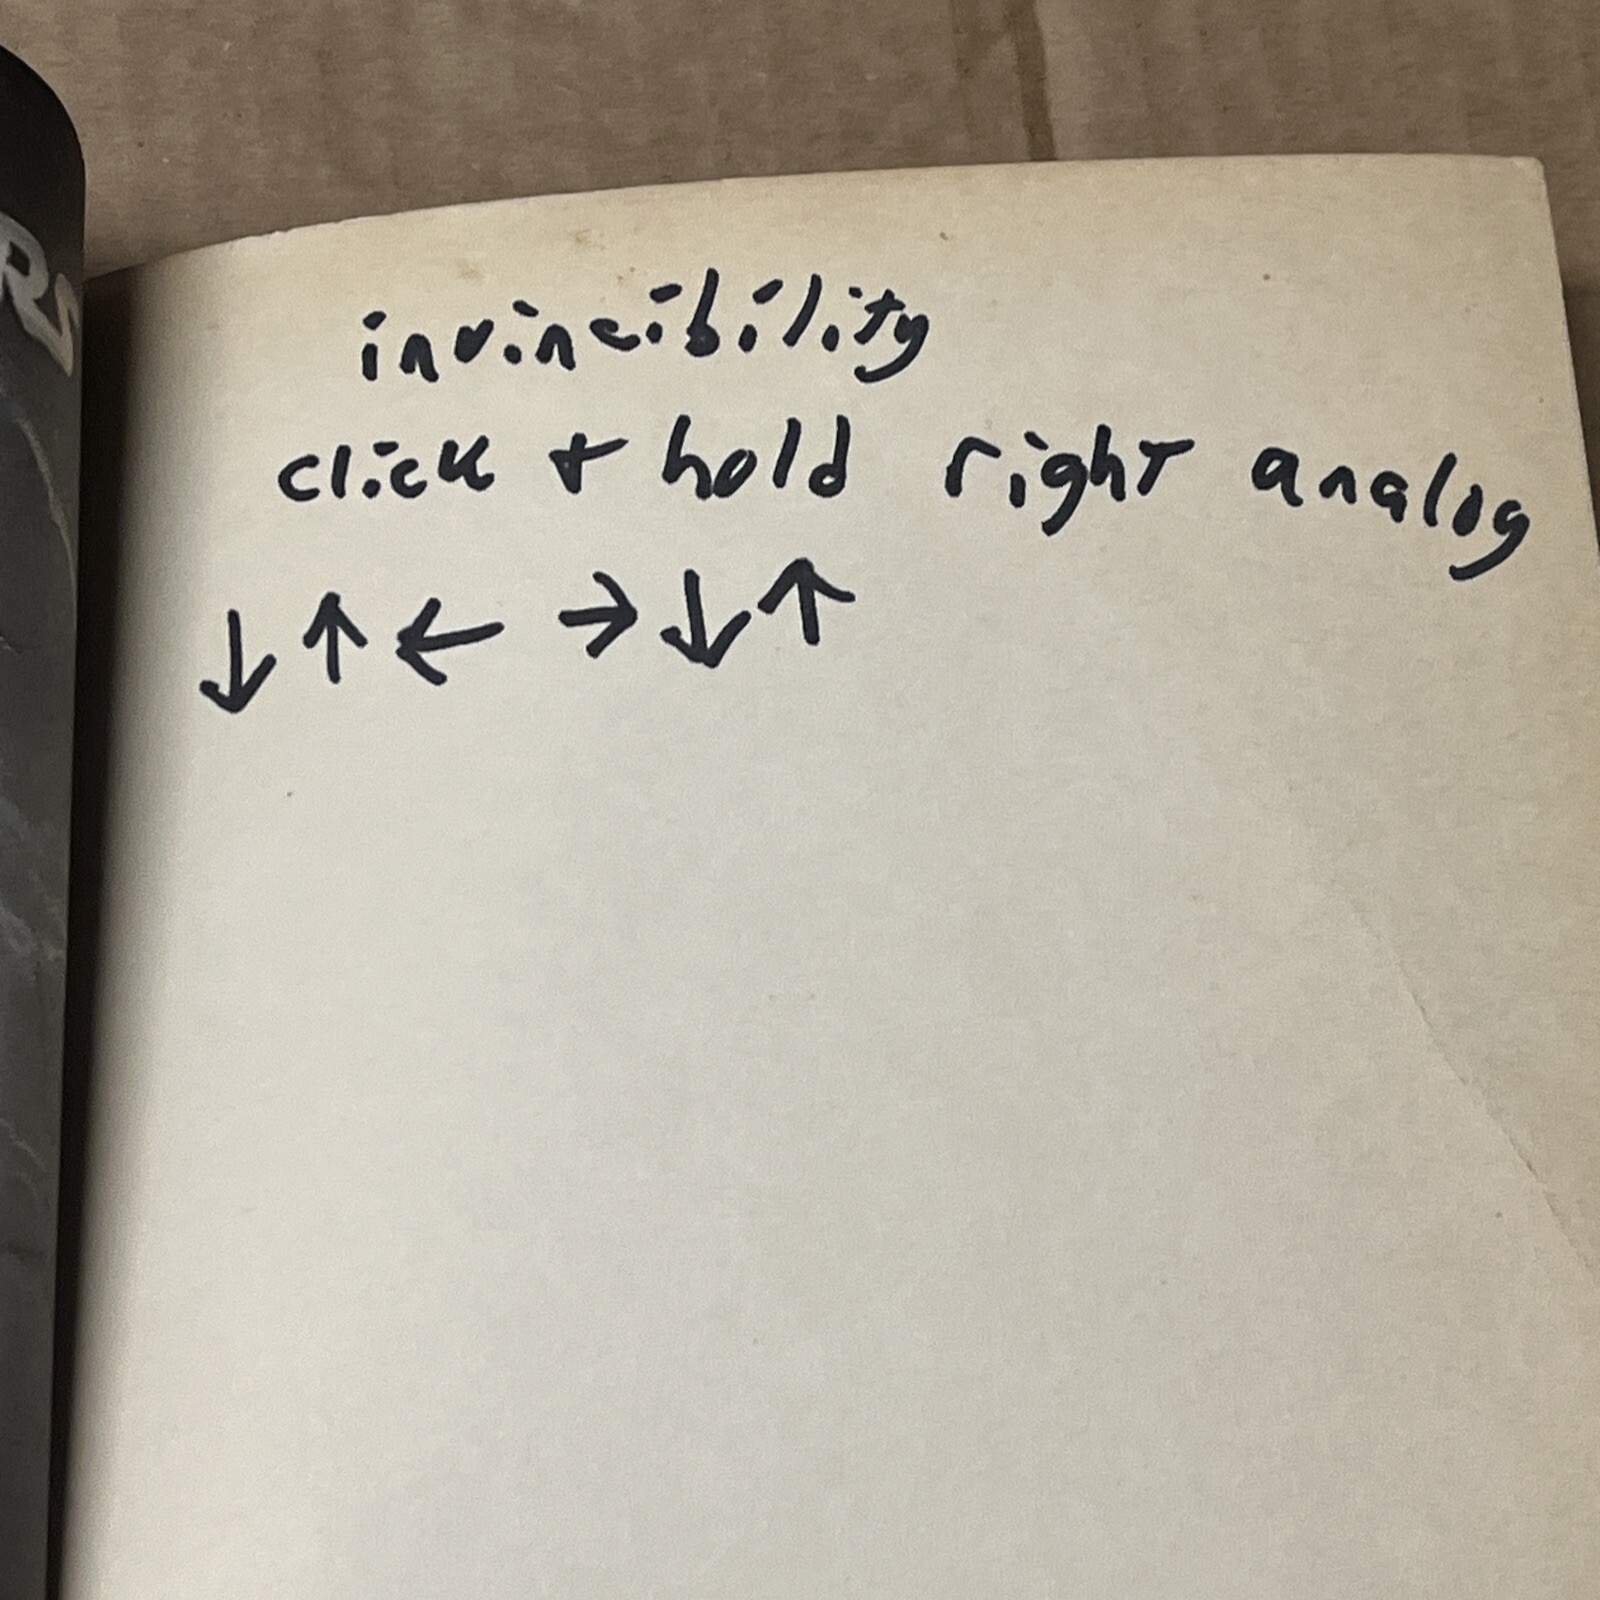 RS
invincibility
click + hold right analog
↓ ↑ ← → ↓ ↑